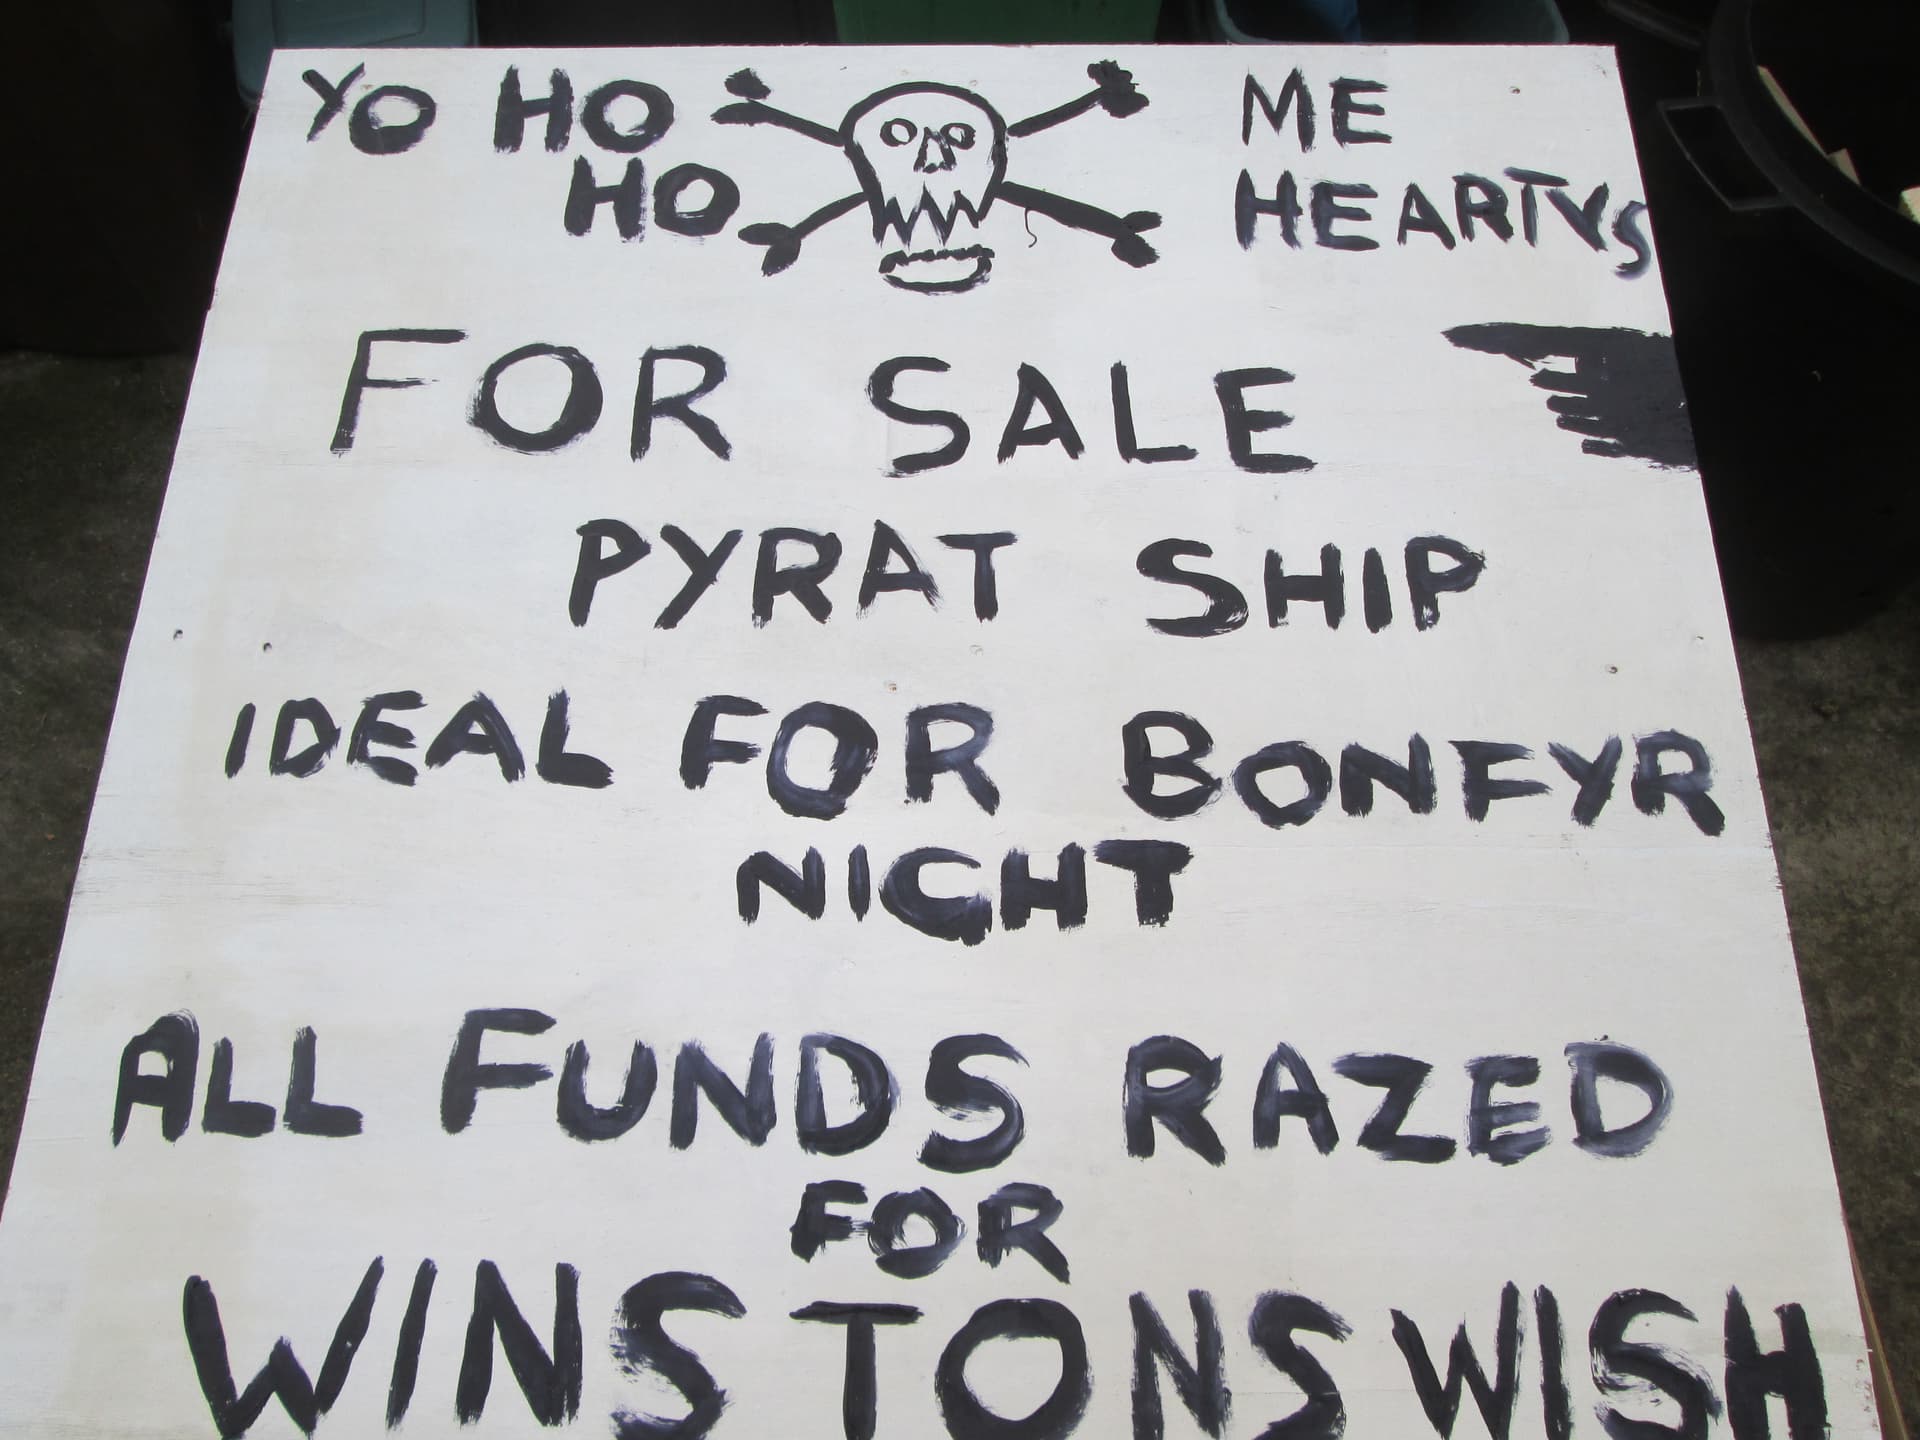 YO HO ME
HO HEARTYS
FOR SALE
PYRAT SHIP
IDEAL FOR BONFYR
NIGHT
ALL FUNDS RAZED
FOR
WINSTONS WISH